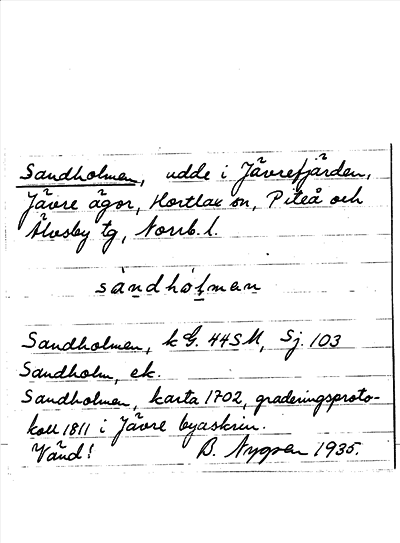 Sandholmen, udde i Jävrefjärden,
Jävre ägor, Hortlax sn, Piteå och
Älvsby tg, Norrb. l.
sàndhóļmen
Sandholmen, k G. 44SM, Sj. 103
Sandholm, ek.
Sandholmen, karta 1702, graderingsproto-
koll 1811 i Jävre byaskrin.
Vänd! B. Nygren 1935.